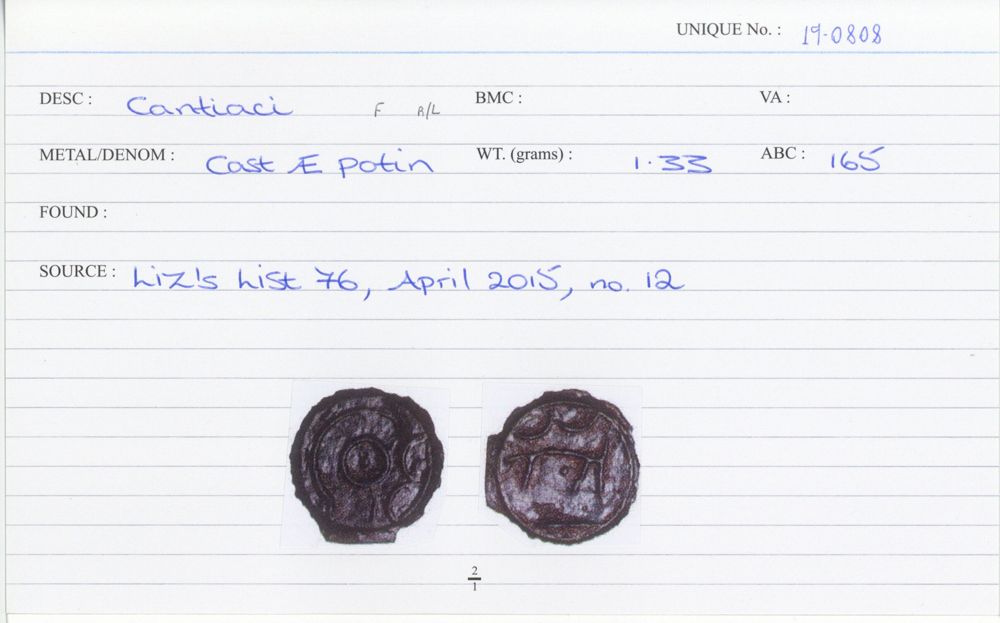 UNIQUE No. : 19-0808
DESC : Cantiaci F R/L BMC : VA :
METAL/DENOM : Cast Æ Potin WT. (grams) : 1.33 ABC : 165
FOUND :
SOURCE : Liz's List 76, April 2015, no. 12
2
1